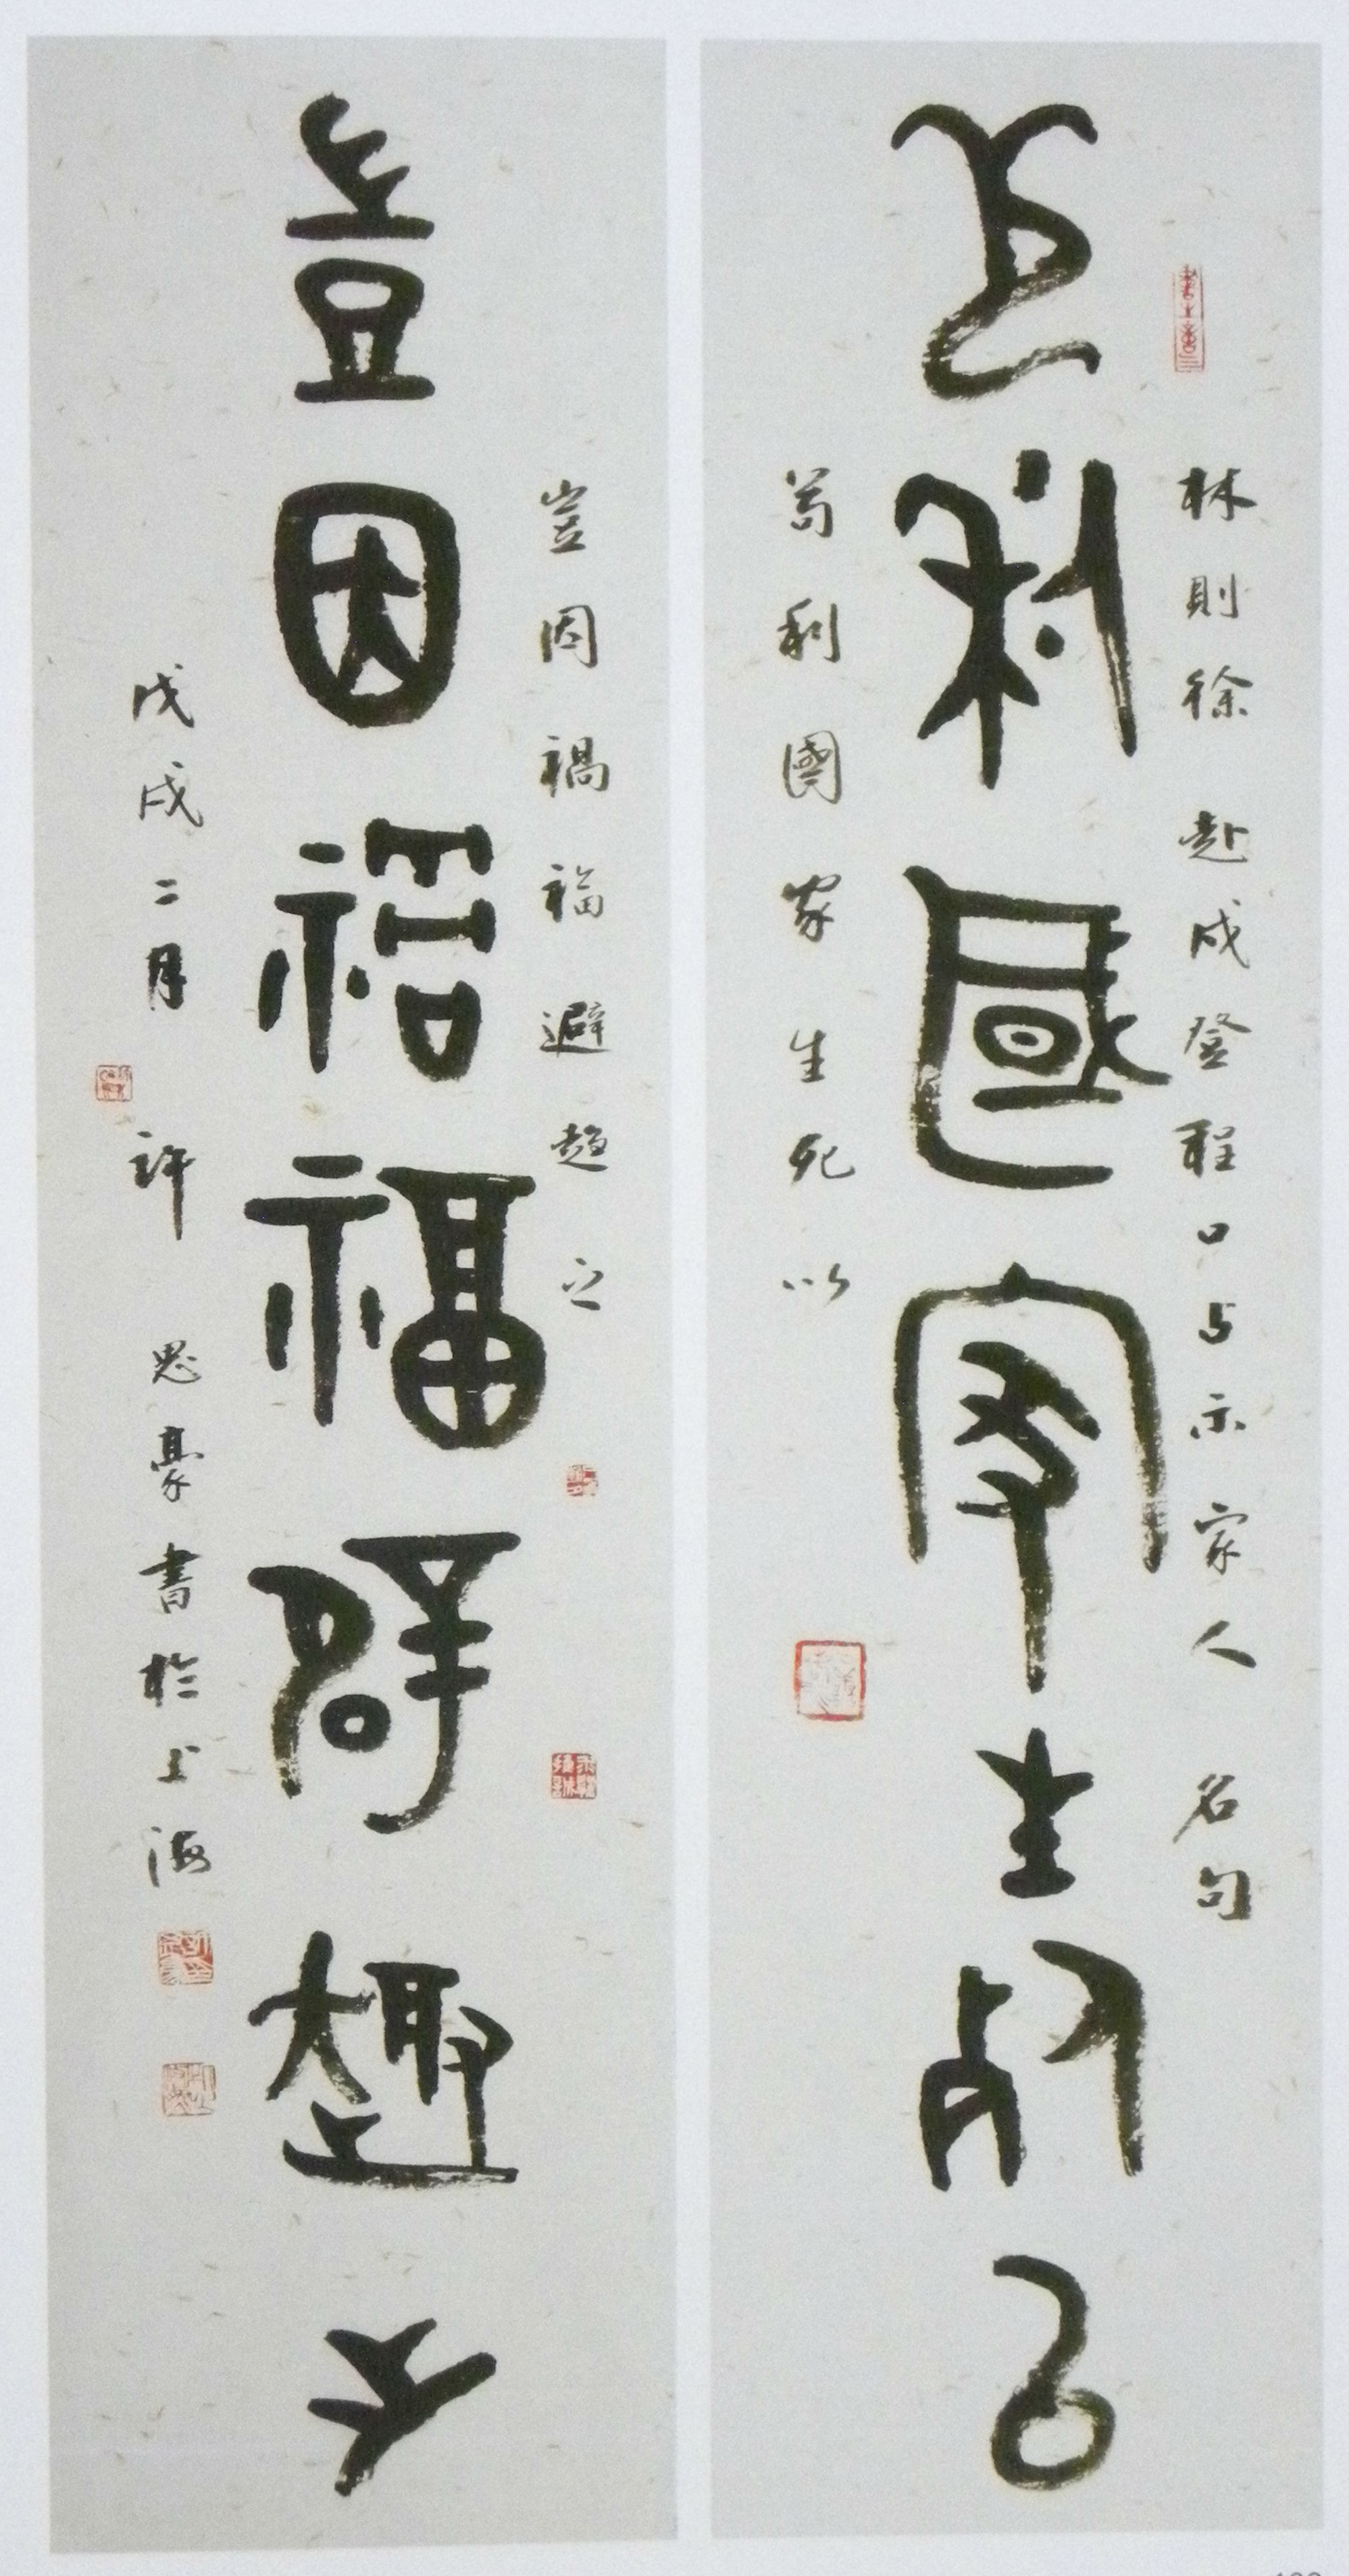 林則徐赴戍登程口占示家人名句
苟利國家生死以
苟利國家生死以
豈因禍福避趨之
豈因禍福辟趣之
戊戌二月許思豪書於上海